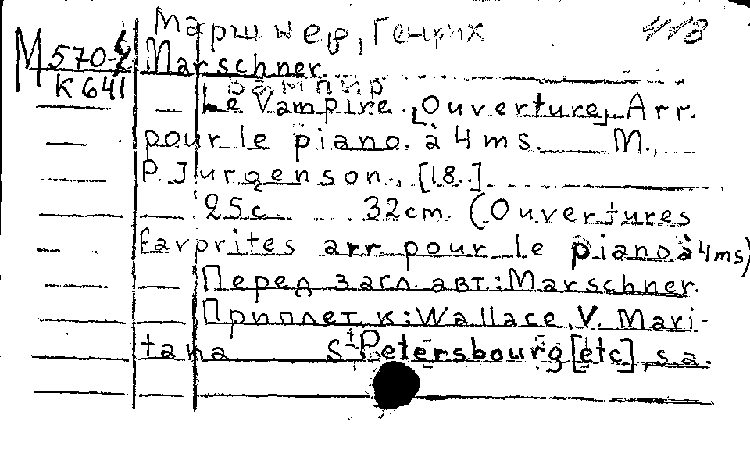 Маршнер, Генрих
М 570-2 Marschner.
К 641 Вампир
Le Vampire. [Ouverture] Arr.
pour le piano à 4 ms. M.,
P. Jurgenson, [18..]
25 с. 32 cm. (Ouvertures
favorites arr. pour le piano à 4 ms)
Перед загл. авт.: Marschner.
Приплет. к: Wallace, V. Mari-
tana St Petersbourg [etc], s.a.